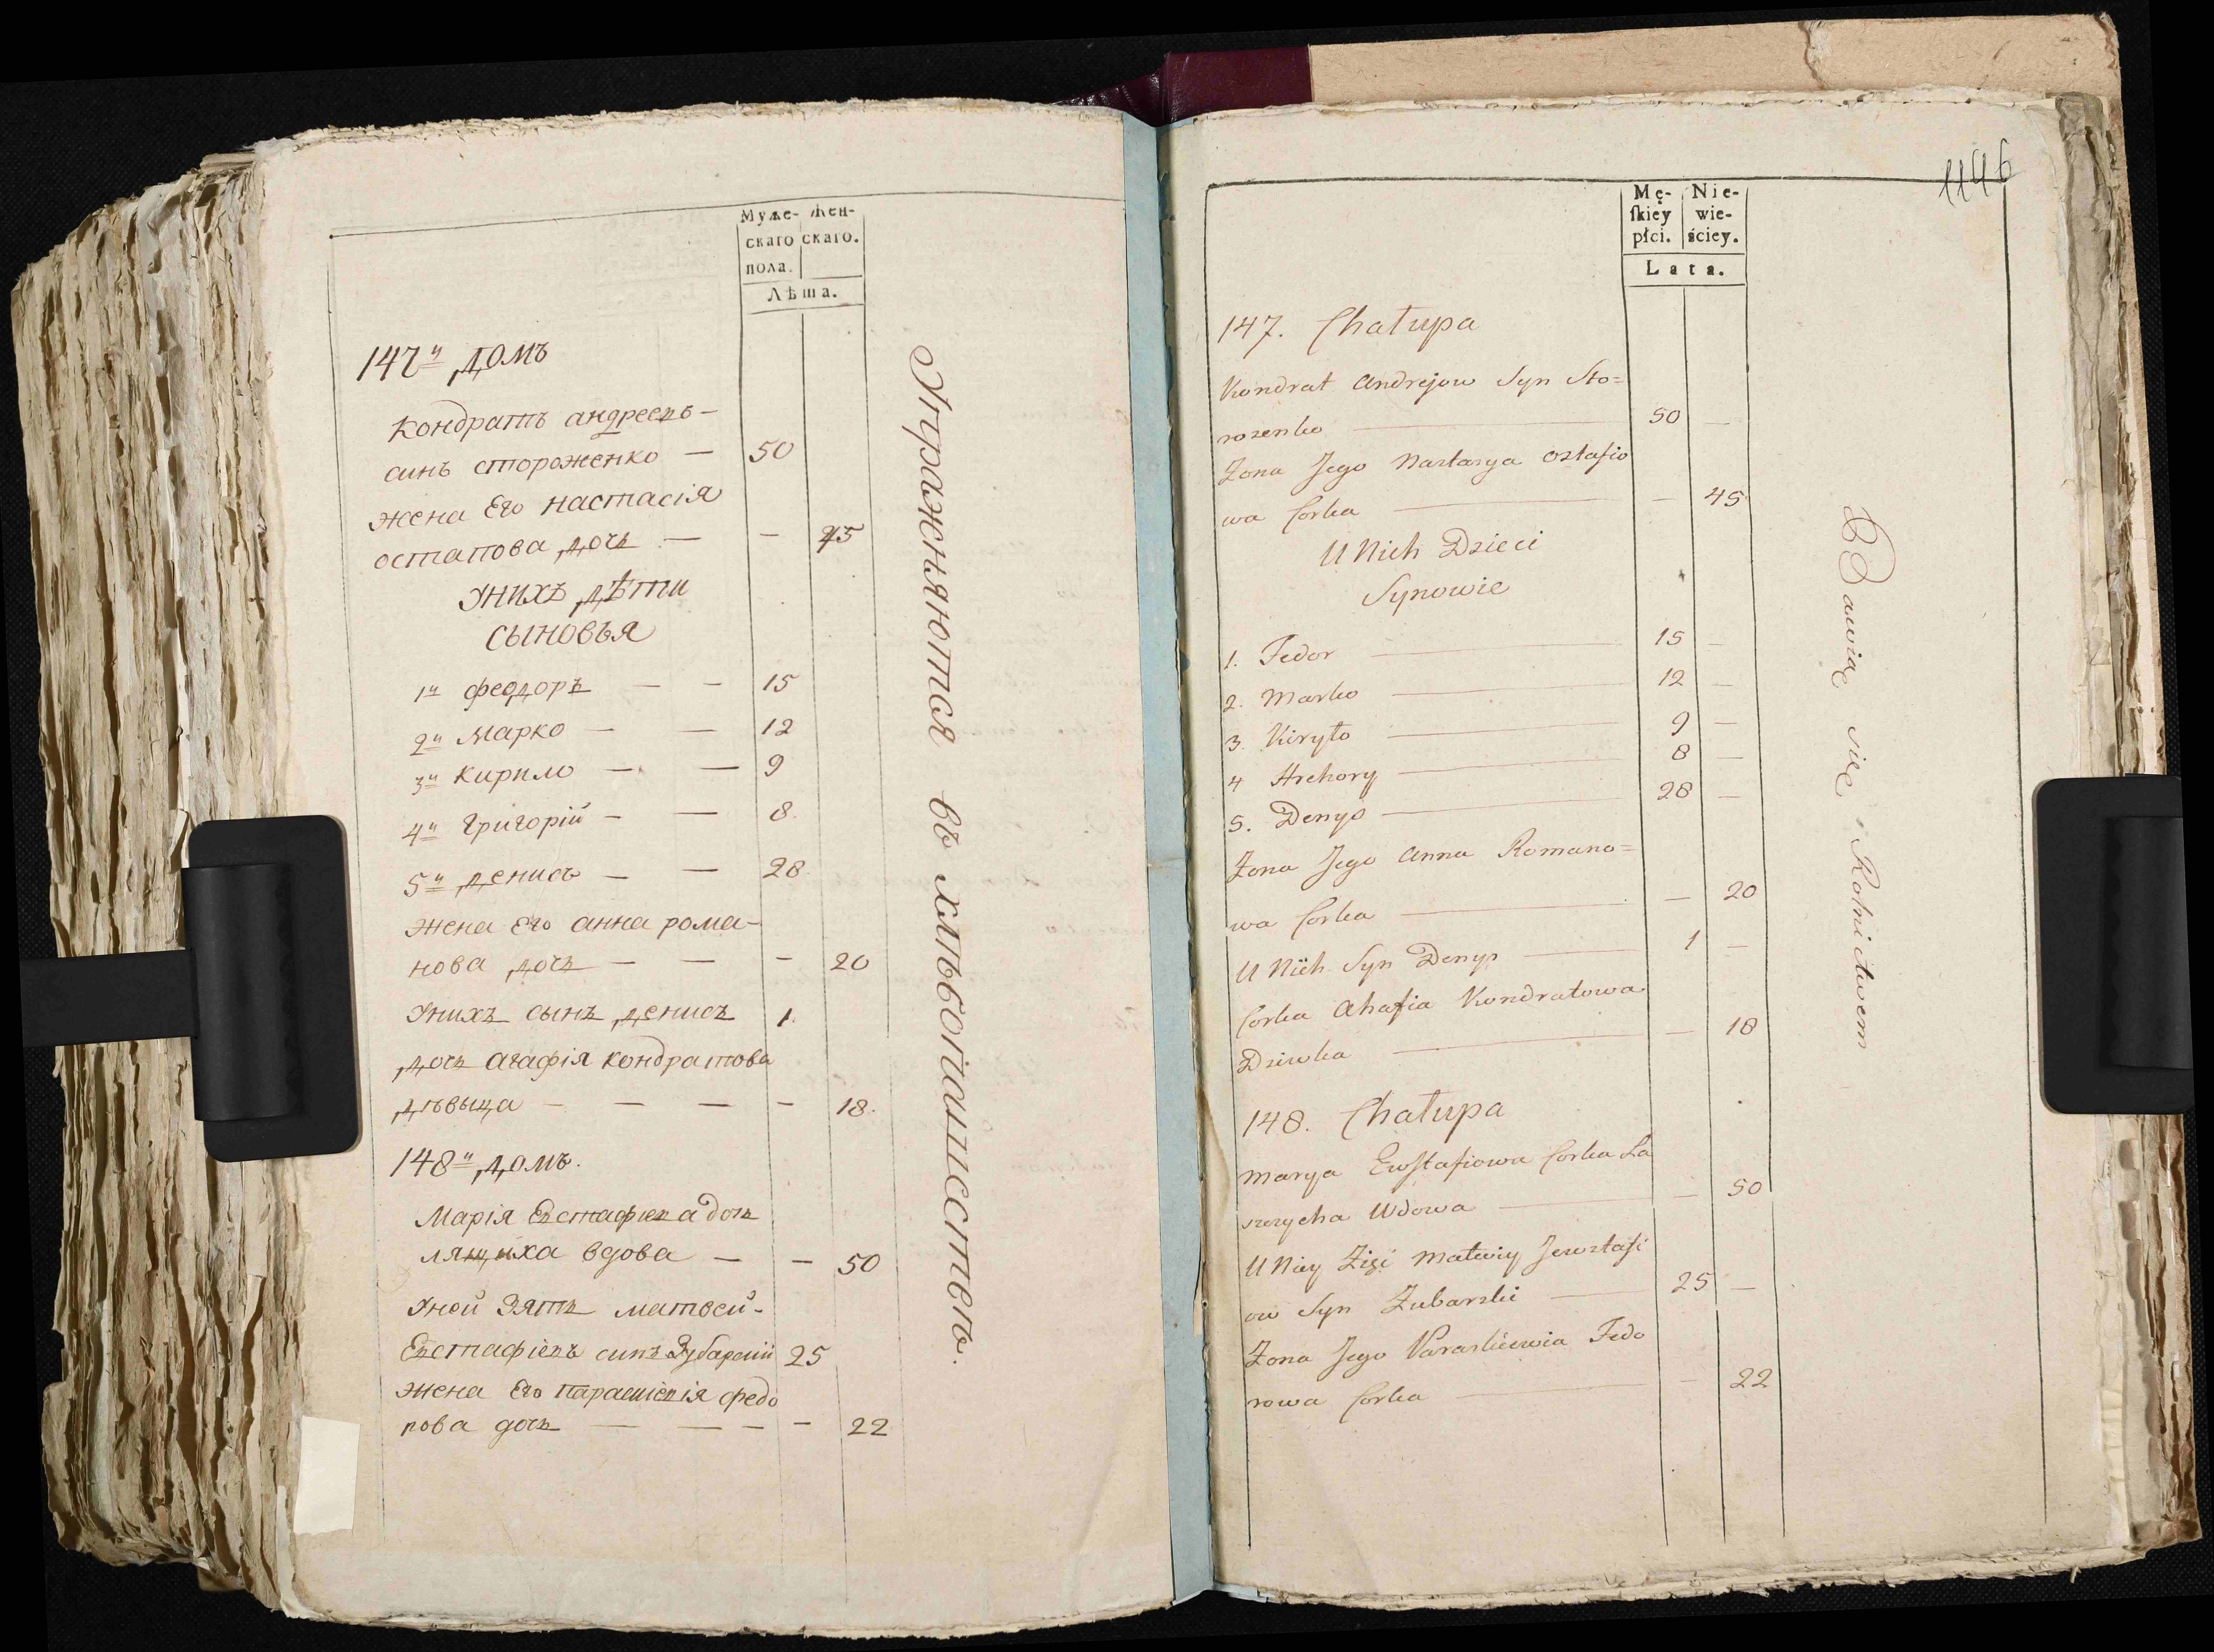 Муже- Жен-
скаго скаго.
пола.
Лѣта.
147й домъ
Кондратъ андреевъ-
синъ стороженко — 50
жена Его настасія
остапова дочь — — 45
Унихъ дѣти
сыновья
1й феодоръ — — 15
2й Марко — — 12
3й Кирило — — 9
4й Григорій — — 8.
5й денисъ — — 28
жена Его анна рома-
нова дочь — — — 20
Унихъ сынъ денисъ 1.
дочь агафія кондратова
дѣвыца — — — — 18.
148й домъ.
Марія Евстафиева дочь
лящиха вдова — — 50
Уней Зять матвей-
Евстафіевъ синъ Зубарский 25
жена Его Параскіевія федо
рова дочь — — — — 22
Упражняются въ хлѣбопашествѣ.
1146
Mę- Nie-
skiey wie-
płci. ściey.
Lata.
147. Chałupa
Kondrat Andrejow Syn Sto=
rozenko — 50 —
Zona Jego Nastasya Ostafio
wa Corka — — 45
U Nich Dzieci
Synowie
1. Fedor — 15 —
2. Marko — 12 —
3. Kiryło — 9 —
4 Hrehory — 8 —
5. Denys — 28 —
Zona Jego Anna Romano=
wa Corka — — 20
U Nich Syn Denys — 1 —
Corka Ahafia Kondratowa
Dziwka — — 18
148. Chałupa
Marya Ewstafiowa Corka La
szczycha Wdowa — — 50
U Niey Zięć Matwiy Jewstafi
ow Syn Zubarski — 25 —
Zona Jego Paraskiewia Fedo
rowa Corka — — 22
Bawią się Rolnictwem